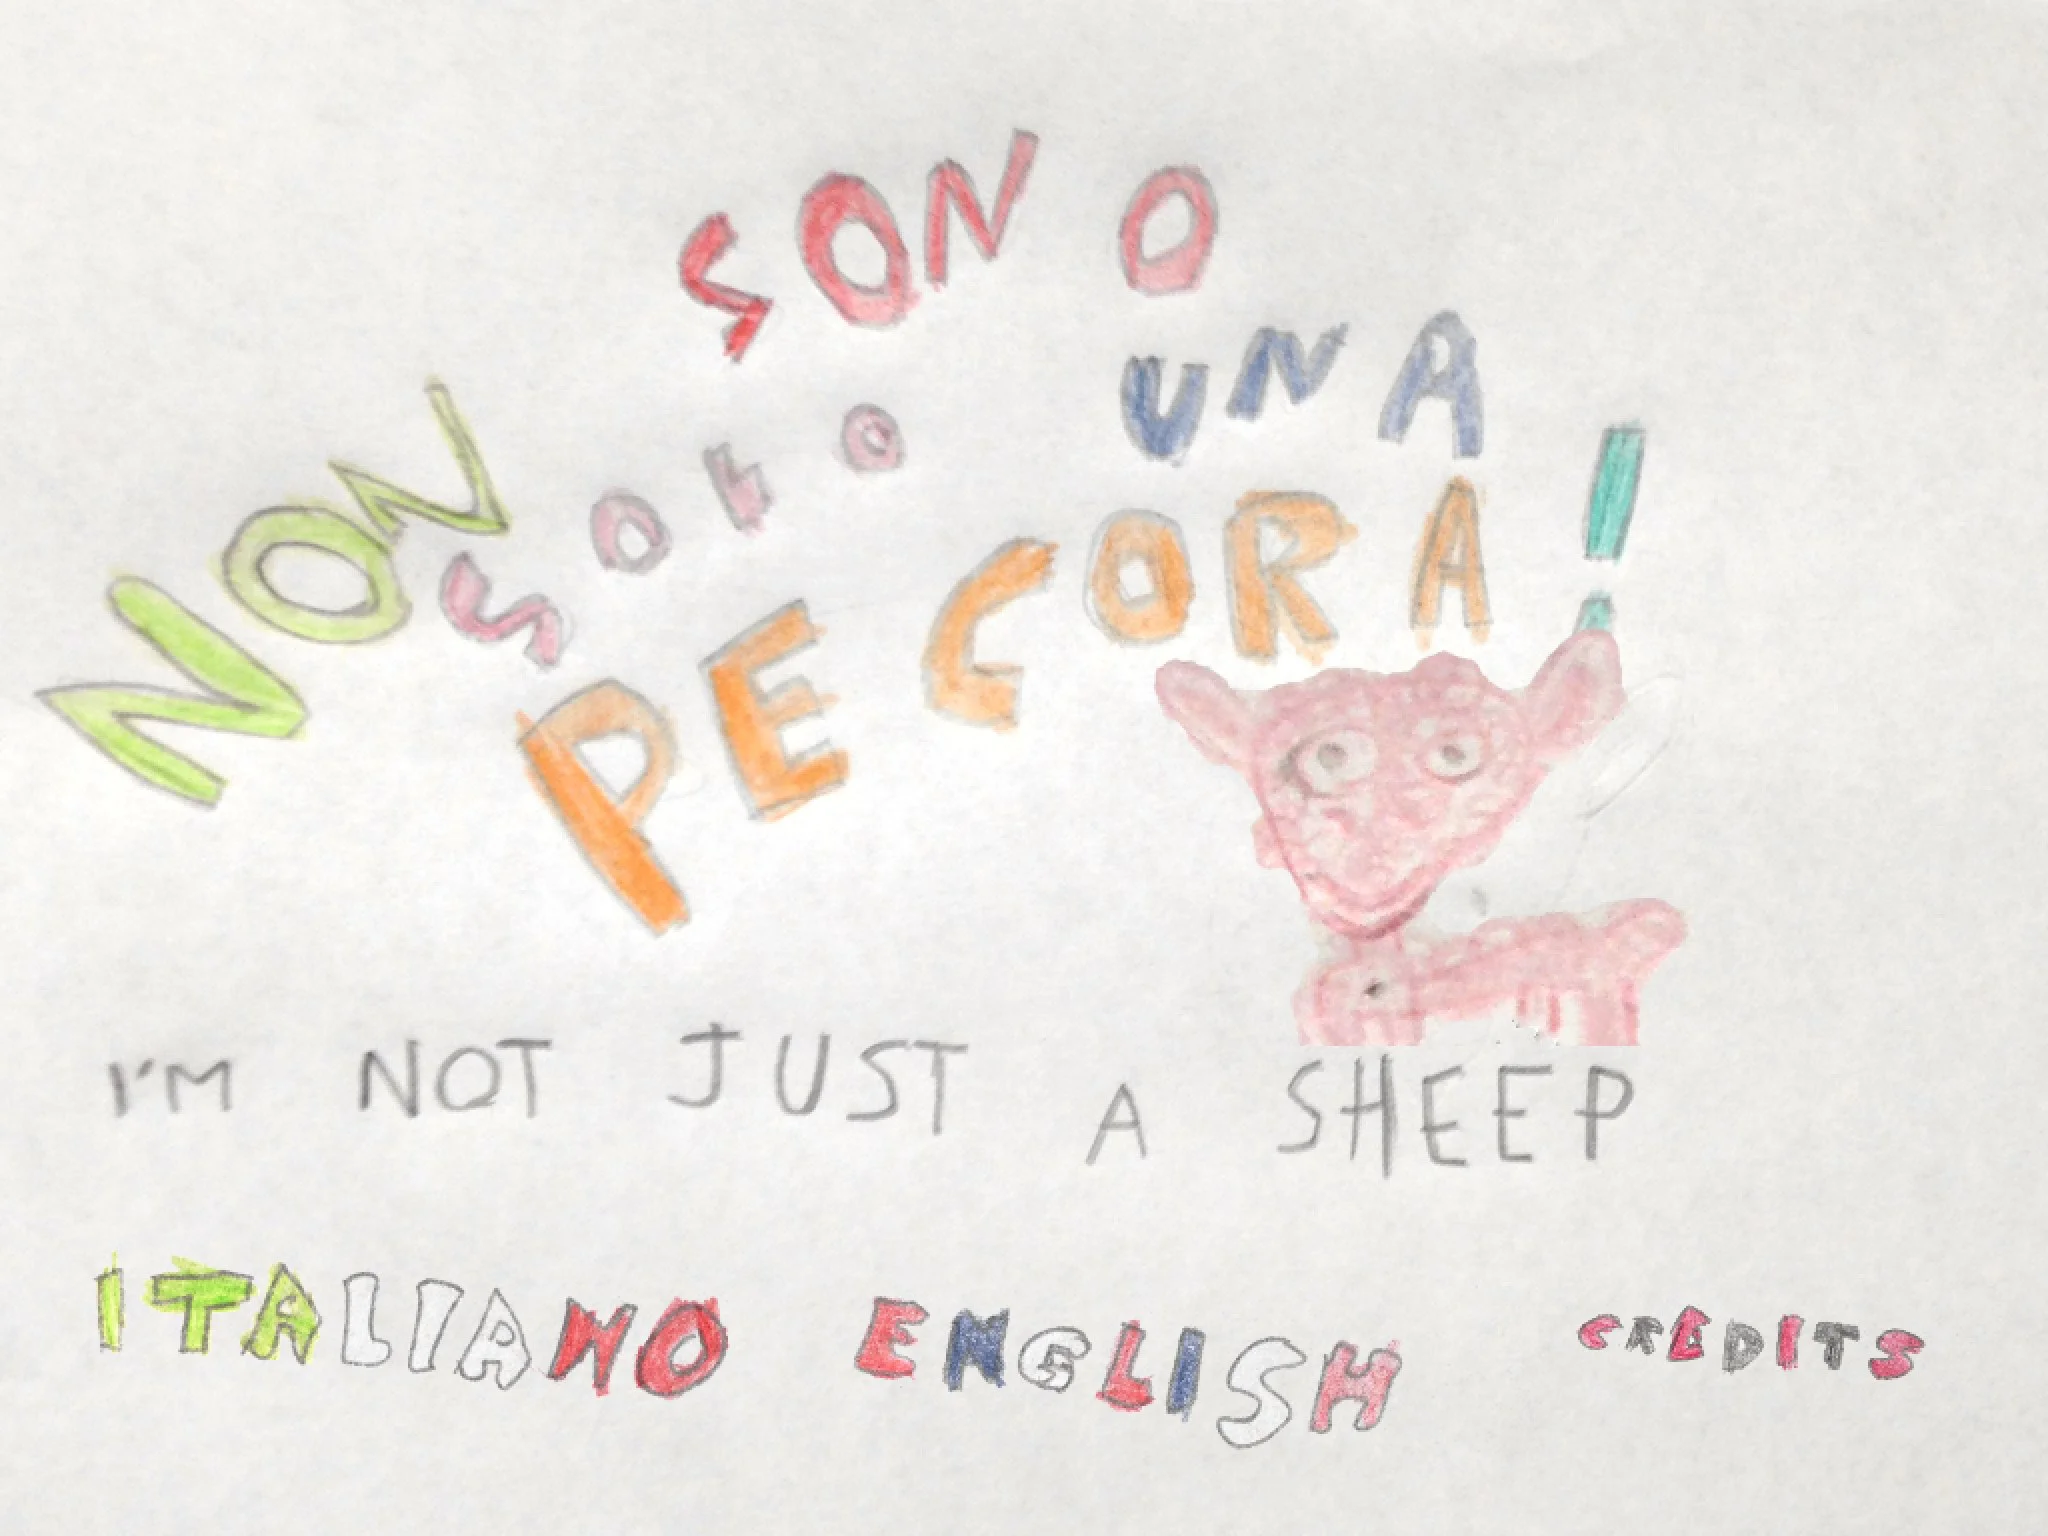 NON SONO
SOLO UNA
PECORA!
I'M NOT JUST A SHEEP
ITALIANO ENGLISH CREDITS